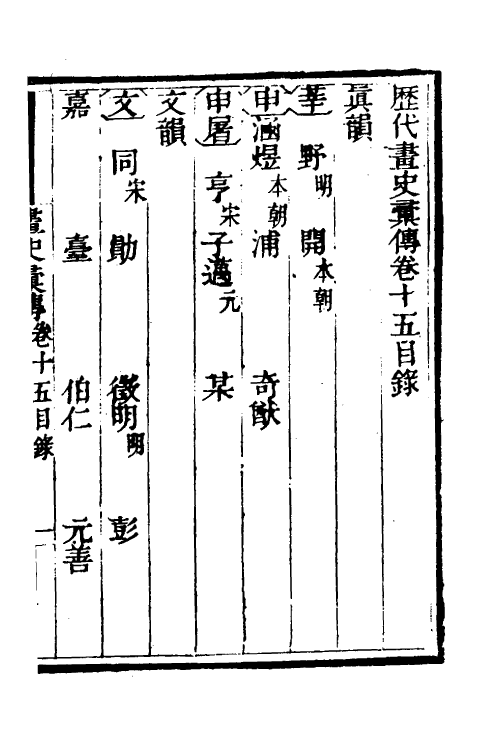 歷代畫史彙傳卷十五目錄
眞韻
莘 野明 開本朝
申涵煜本朝 浦 奇猷
申屠 亨宋 子邁元 某
文韻
文 同宋 勛 徵明明 彭
嘉 臺 伯仁 元善
畫史彙傳卷十五目錄 一